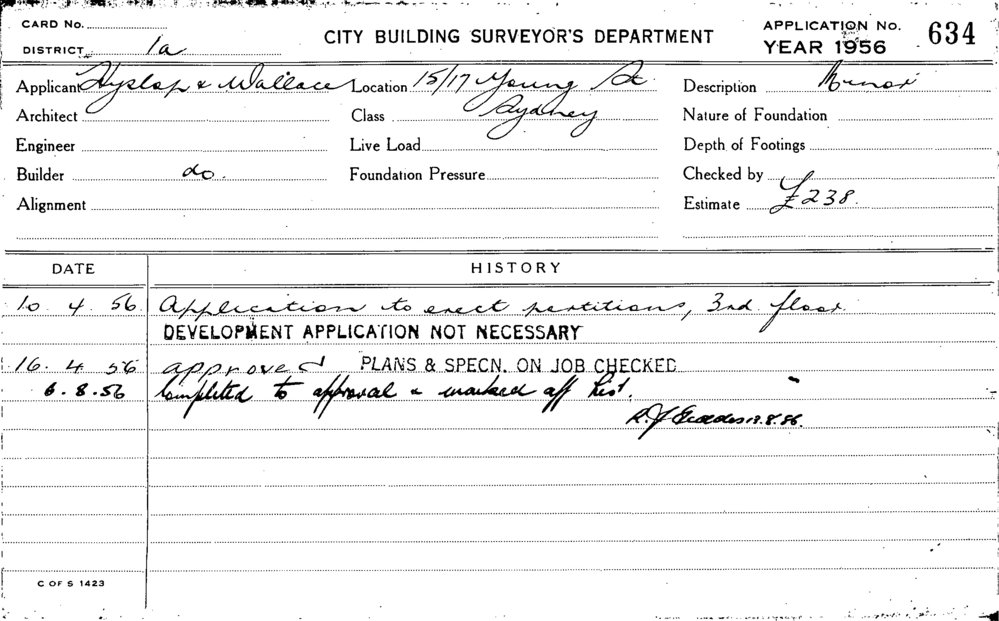 CARD No.
DISTRICT 1a
CITY BUILDING SURVEYOR'S DEPARTMENT
APPLICATION No. 634
YEAR 1956
Applicant Hyslop & Wallace Location 15/17 Young St Description Minor
Architect Class Sydney Nature of Foundation
Engineer Live Load Depth of Footings
Builder do. Foundation Pressure Checked by
Alignment Estimate £238.
DATE HISTORY
10. 4. 56. Application to erect partitions, 3rd floor.
DEVELOPMENT APPLICATION NOT NECESSARY
16. 4 56 approved PLANS & SPECN. ON JOB CHECKED
6. 8. 56 Completed to approval & marked off list.
C OF S 1423